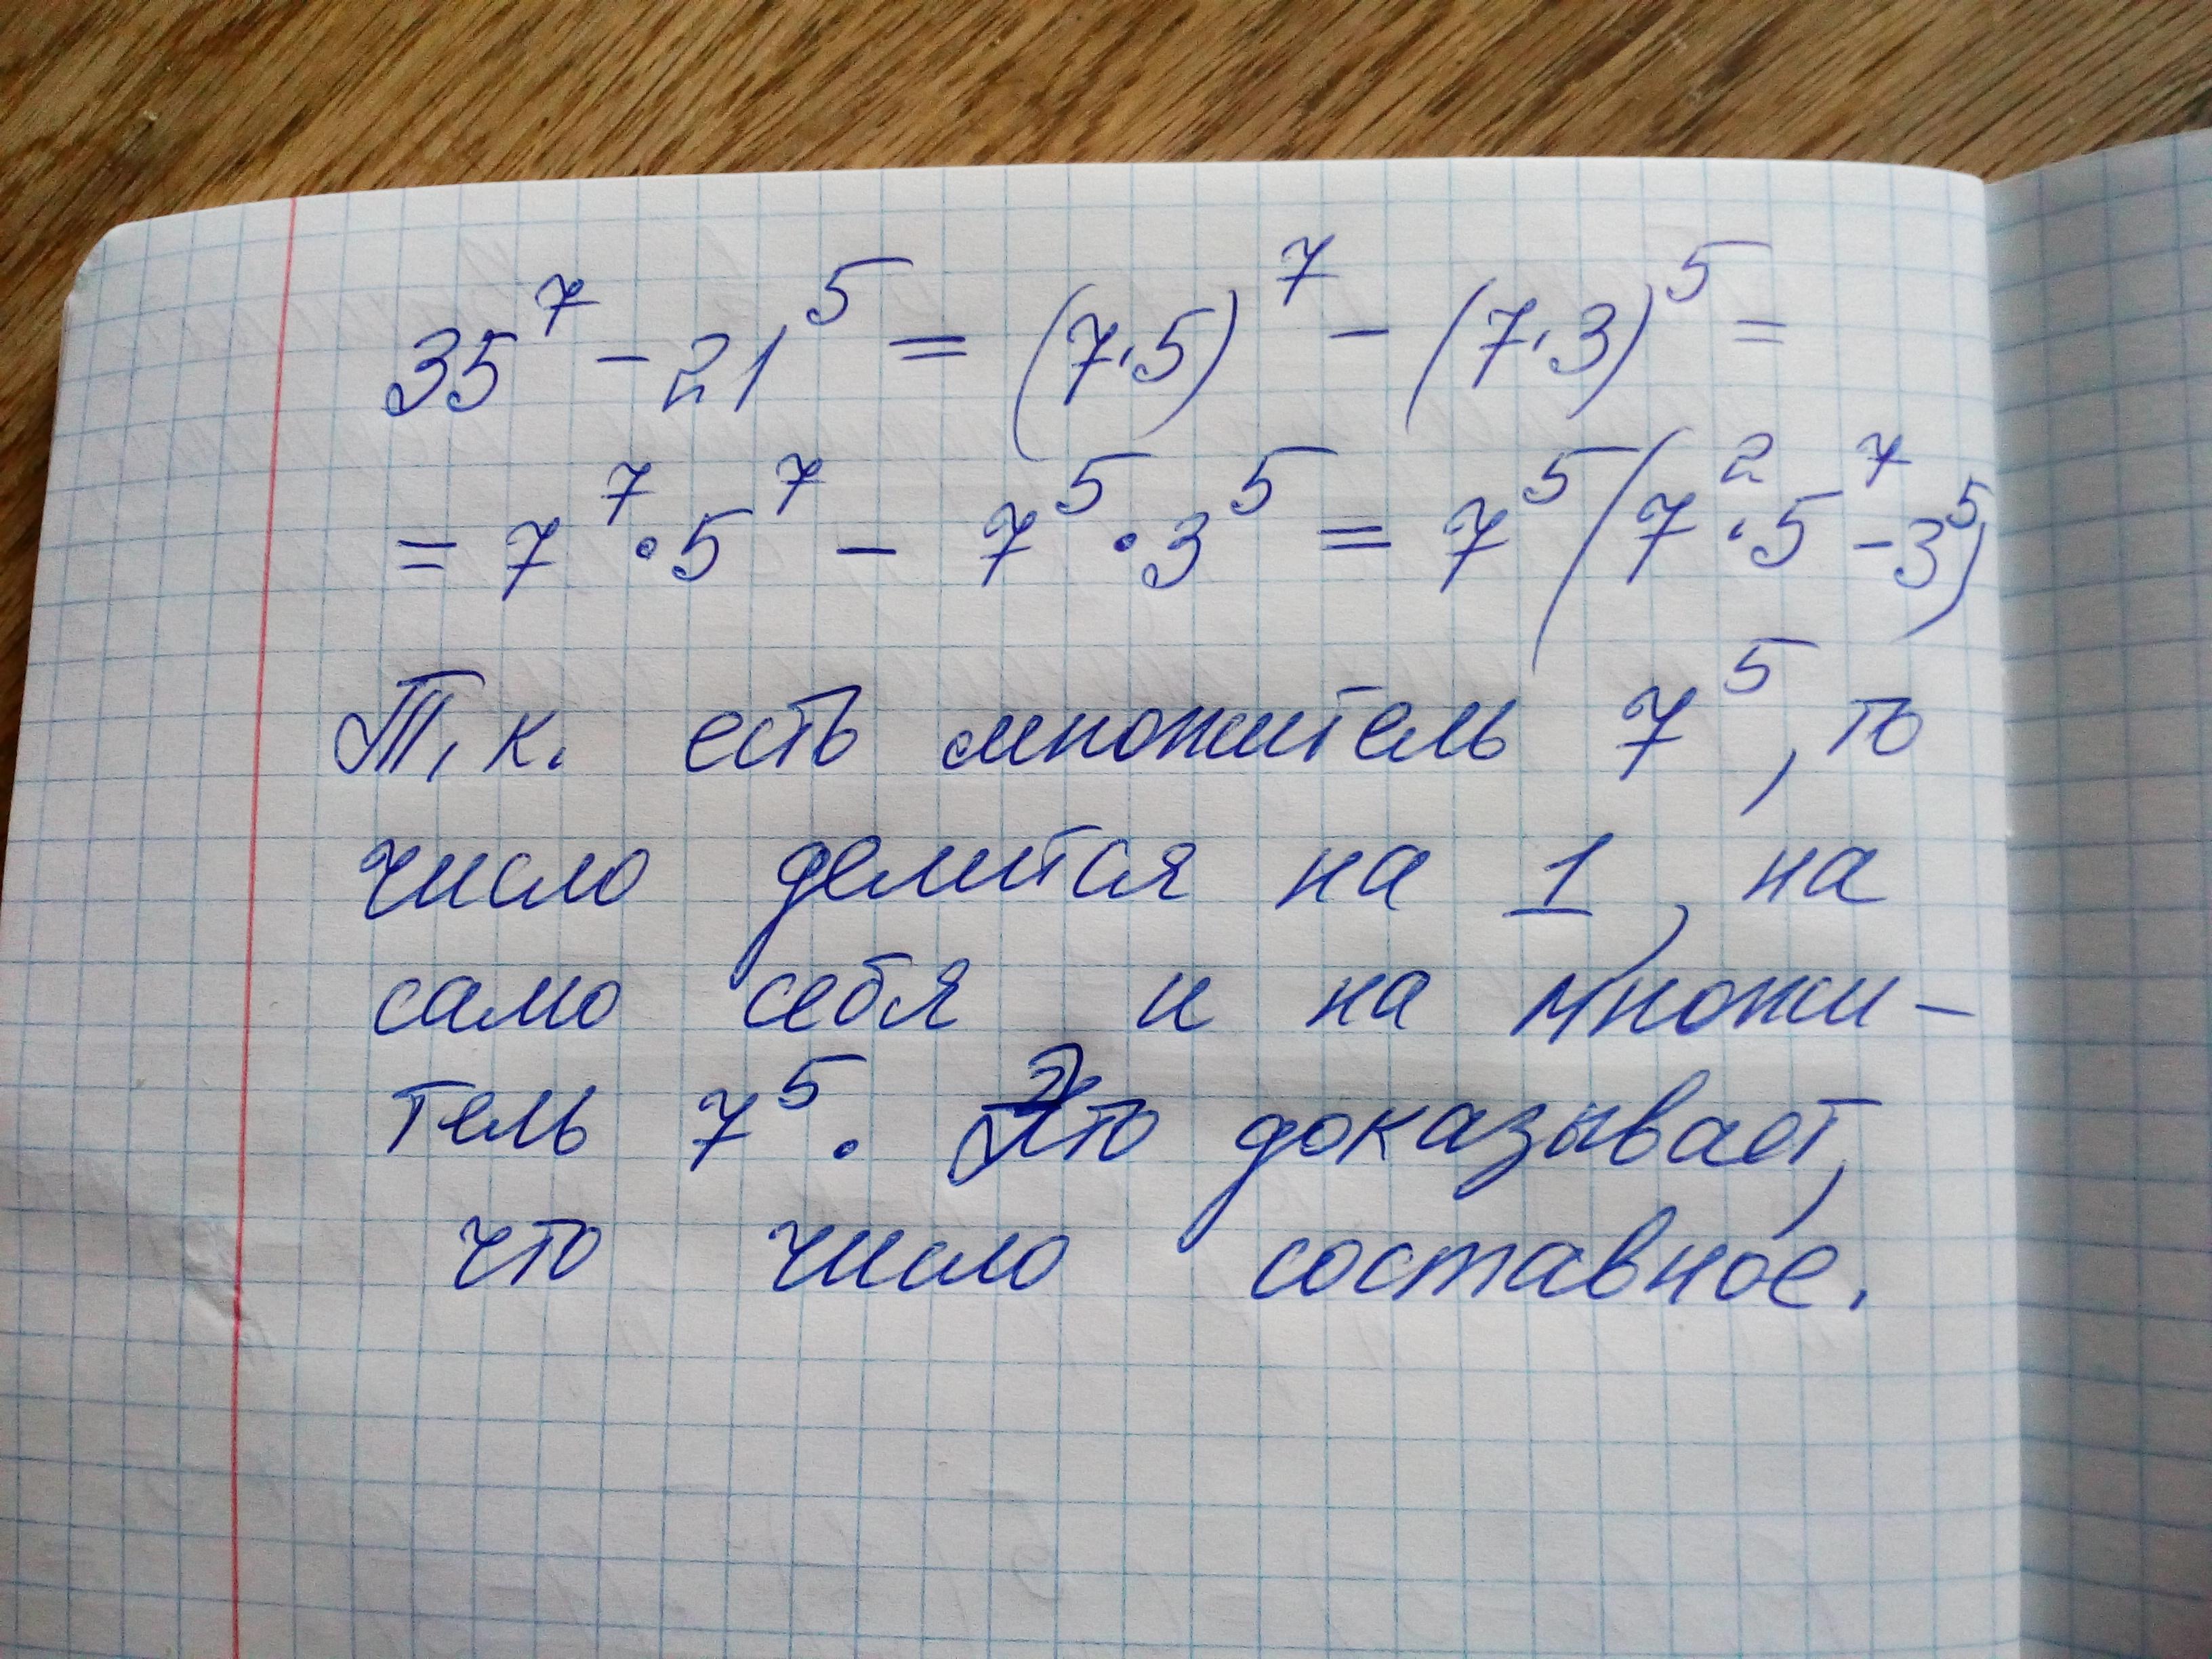 35⁷ - 21⁵ = (7·5)⁷ - (7·3)⁵ =
= 7⁷·5⁷ - 7⁵·3⁵ = 7⁵(7²·5⁷-3⁵)
Т, к. есть множитель 7⁵, то
число делится на 1, на
само себя и на множи-
тель 7⁵. Это доказывает,
что число составное.